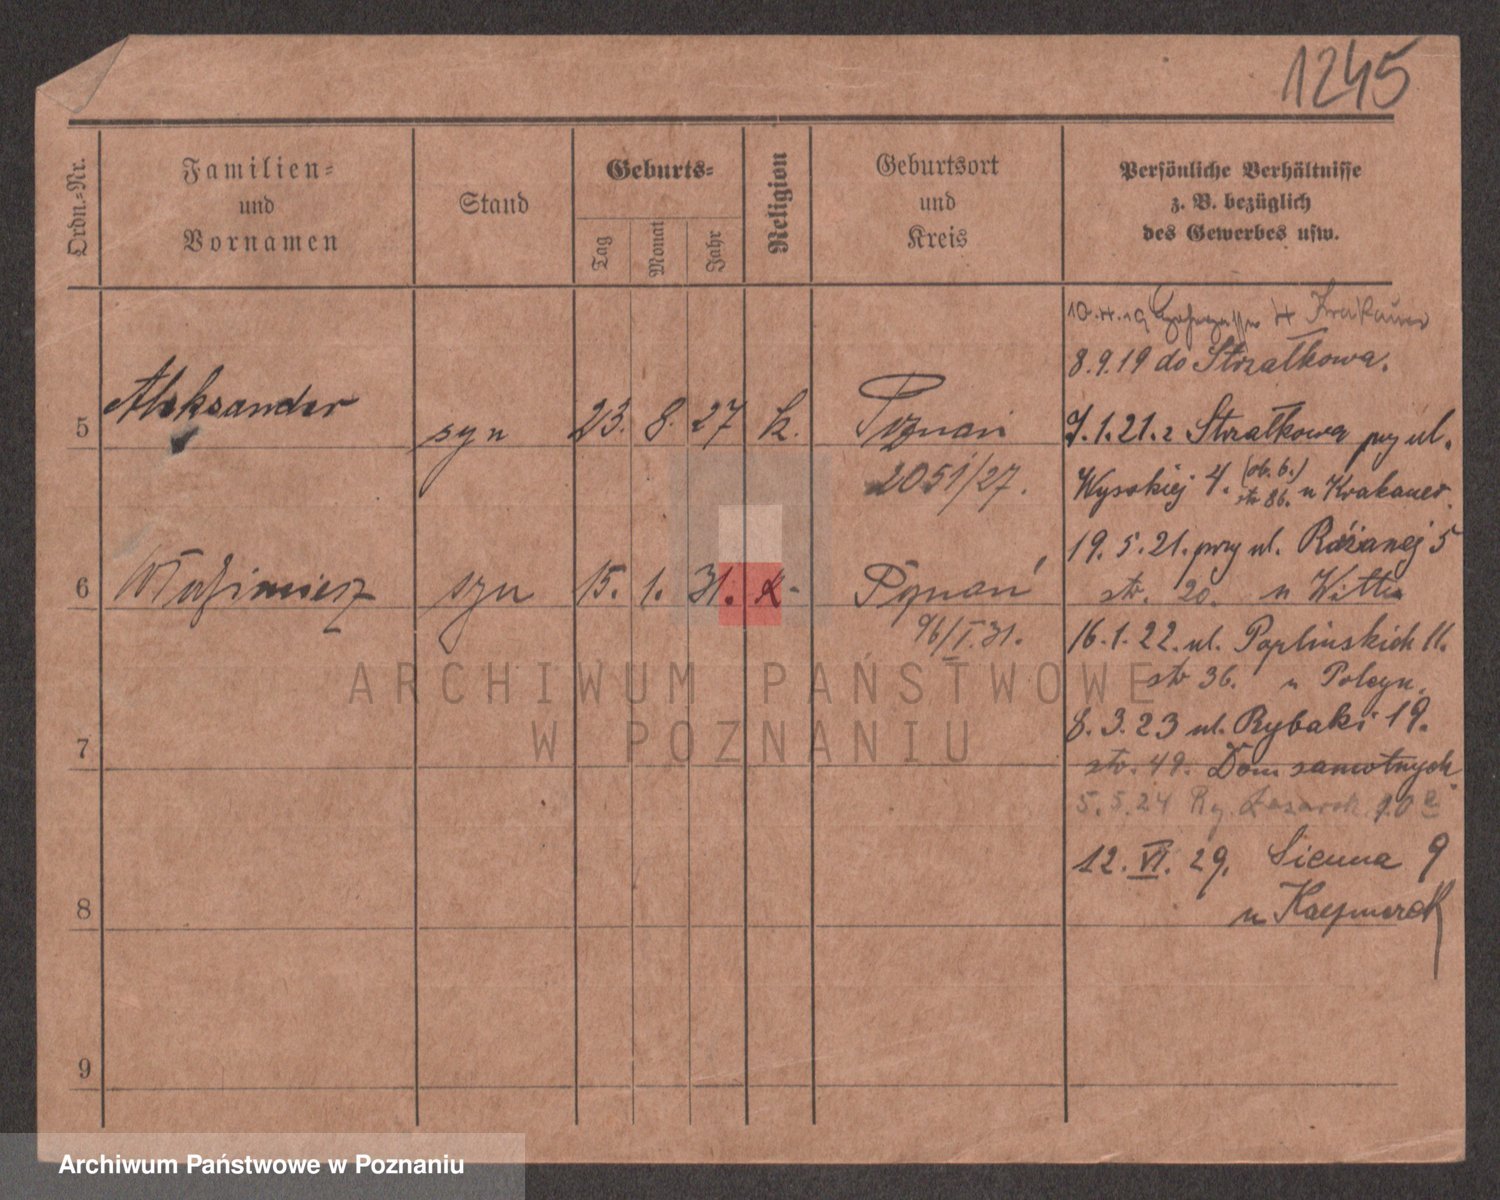 1245
Ordn.-Nr.
Familien-
und
Vornamen
Stand
Geburts-
Tag
Monat
Jahr
Religion
Geburtsort
und
Kreis
Persönliche Verhältnisse
z. B. bezüglich
des Gewerbes usw.
Krakauer
8.9.19 do Strzałkowa.
5 Aleksander syn 23. 8. 27 k. Poznań
2051/27.
7.1.21. z Strzałkowa przy ul.
Wysokiej 4. (ob. b.) str 86. u Krakauer.
19. 5. 21. przy ul. Różanej 5
str. 20. u Wittu
6 Włodzimierz syn 15. 1. 31. k. Poznań
96/I.31.
16.1.22. ul. Poplinskich 11.
str 36. u
8. 3. 23 ul. Rybaki 19.
str. 49. Dom samotnych
5. 5. 24
12. VI. 29. Sienna 9
u Kaczmarek
7
8
9
ARCHIWUM PAŃSTWOWE
W POZNANIU
Archiwum Państwowe w Poznaniu